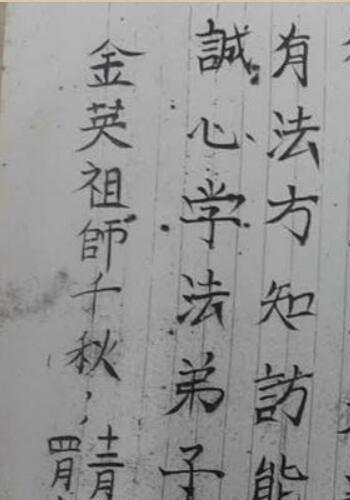 有法方知訪能
誠心学法弟子
金英祖師千秋，
十二月
四月